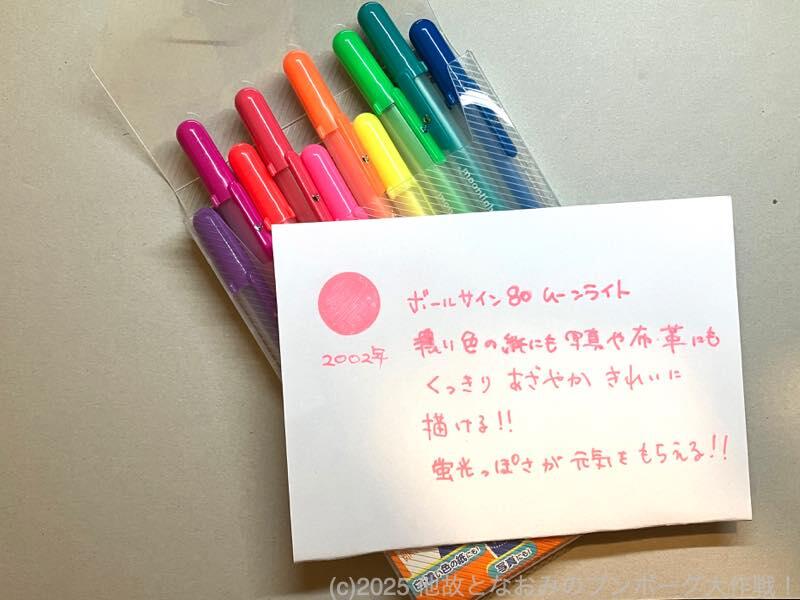 moonlight
ボールサイン80 ムーンライト
2002年
濃い色の紙にも写真や布・革にも
くっきり あざやか きれいに
描ける!!
蛍光っぽさが元気をもらえる!!
濃い色の紙にも!
写真にも!
(c)2025 他故となおみのブンボーグ大作戦!